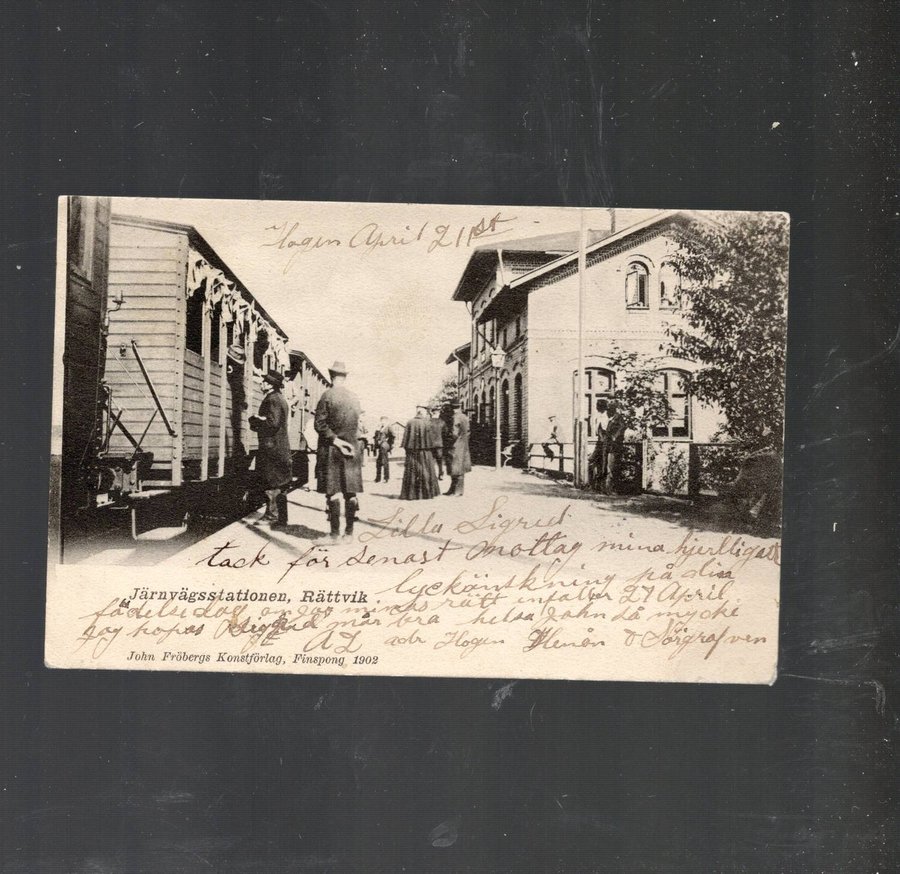 Hogen April 21st
Lilla Sigrid
tack för senast Mottag mina hjertligaste
lyckönskning på din
Järnvägsstationen, Rättvik
födelsedag om jag minns rätt infaller 27 April,
jag hopas Sigrid mår bra helsa John så mycke
AL adr Hogen Henån
John Fröbergs Konstförlag, Finspong 1902